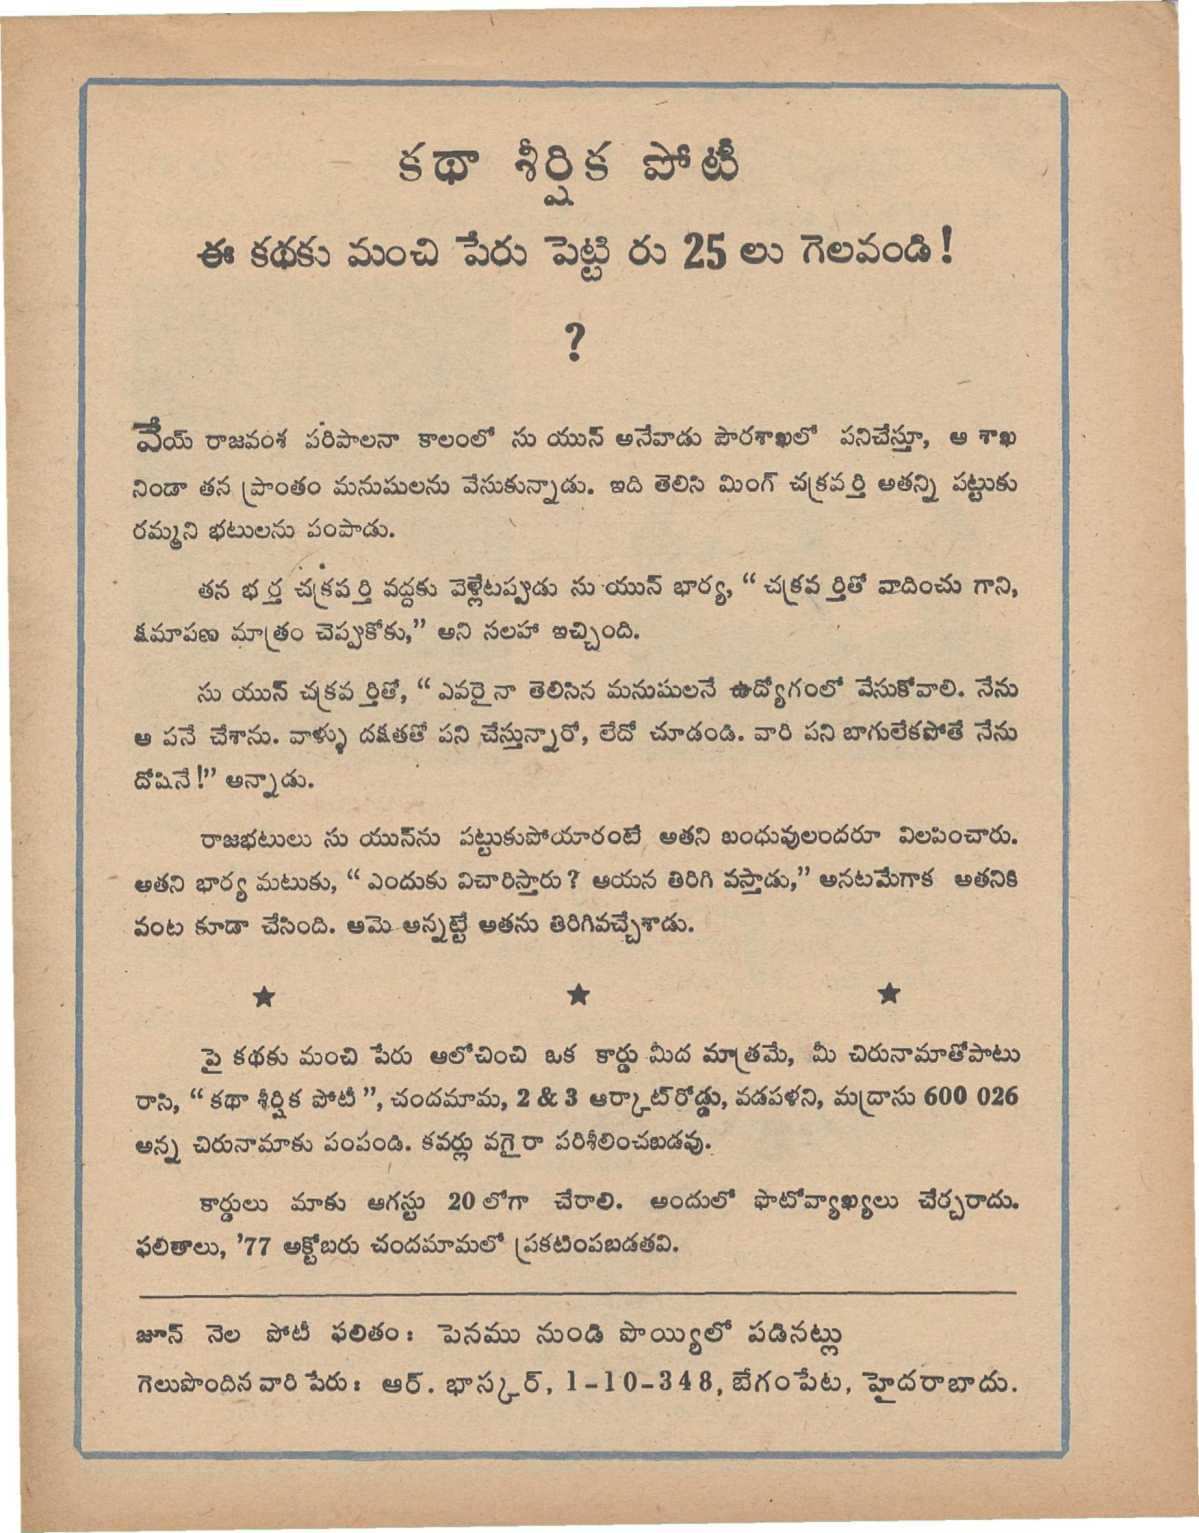 కథా శీర్షిక పోటీ
ఈ కథకు మంచి పేరు పెట్టి రు 25 లు గెలవండి!
?
వేయ్ రాజవంశ పరిపాలనా కాలంలో సు యున్ అనేవాడు పౌరశాఖలో పనిచేస్తూ, ఆ శాఖ
నిండా తన ప్రాంతం మనుషులను వేసుకున్నాడు. ఇది తెలిసి మింగ్ చక్రవర్తి అతన్ని పట్టుకు
రమ్మని భటులను పంపాడు.
తన భర్త చక్రవర్తి వద్దకు వెళ్లేటప్పుడు సు యున్ భార్య, “ చక్రవర్తితో వాదించు గాని,
క్షమాపణ మాత్రం చెప్పుకోకు,” అని సలహా ఇచ్చింది.
సు యున్ చక్రవర్తితో, “ ఎవరైనా తెలిసిన మనుషులనే ఉద్యోగంలో వేసుకోవాలి. నేను
ఆ పనే చేశాను. వాళ్ళు దక్షతతో పని చేస్తున్నారో, లేదో చూడండి. వారి పని బాగులేకపోతే నేను
దోషినే!” అన్నాడు.
రాజభటులు సు యున్‌ను పట్టుకుపోయారంటే అతని బంధువులందరూ విలపించారు.
అతని భార్య మటుకు, “ ఎందుకు విచారిస్తారు? ఆయన తిరిగి వస్తాడు,” అనటమేగాక అతనికి
వంట కూడా చేసింది. ఆమె అన్నట్టే అతను తిరిగివచ్చేశాడు.
★ ★ ★
పై కథకు మంచి పేరు ఆలోచించి ఒక కార్డు మీద మాత్రమే, మీ చిరునామాతోపాటు
రాసి, “ కథా శీర్షిక పోటీ ”, చందమామ, 2 & 3 ఆర్కాట్‌రోడ్డు, వడపళని, మద్రాసు 600 026
అన్న చిరునామాకు పంపండి. కవర్లు వగైరా పరిశీలించబడవు.
కార్డులు మాకు ఆగస్టు 20 లోగా చేరాలి. అందులో ఫొటోవ్యాఖ్యలు చేర్చరాదు.
ఫలితాలు, ’77 అక్టోబరు చందమామలో ప్రకటింపబడతవి.
జూన్ నెల పోటీ ఫలితం: పెనము నుండి పొయ్యిలో పడినట్లు
గెలుపొందిన వారి పేరు: ఆర్. భాస్కర్, 1-10-348, బేగంపేట, హైదరాబాదు.